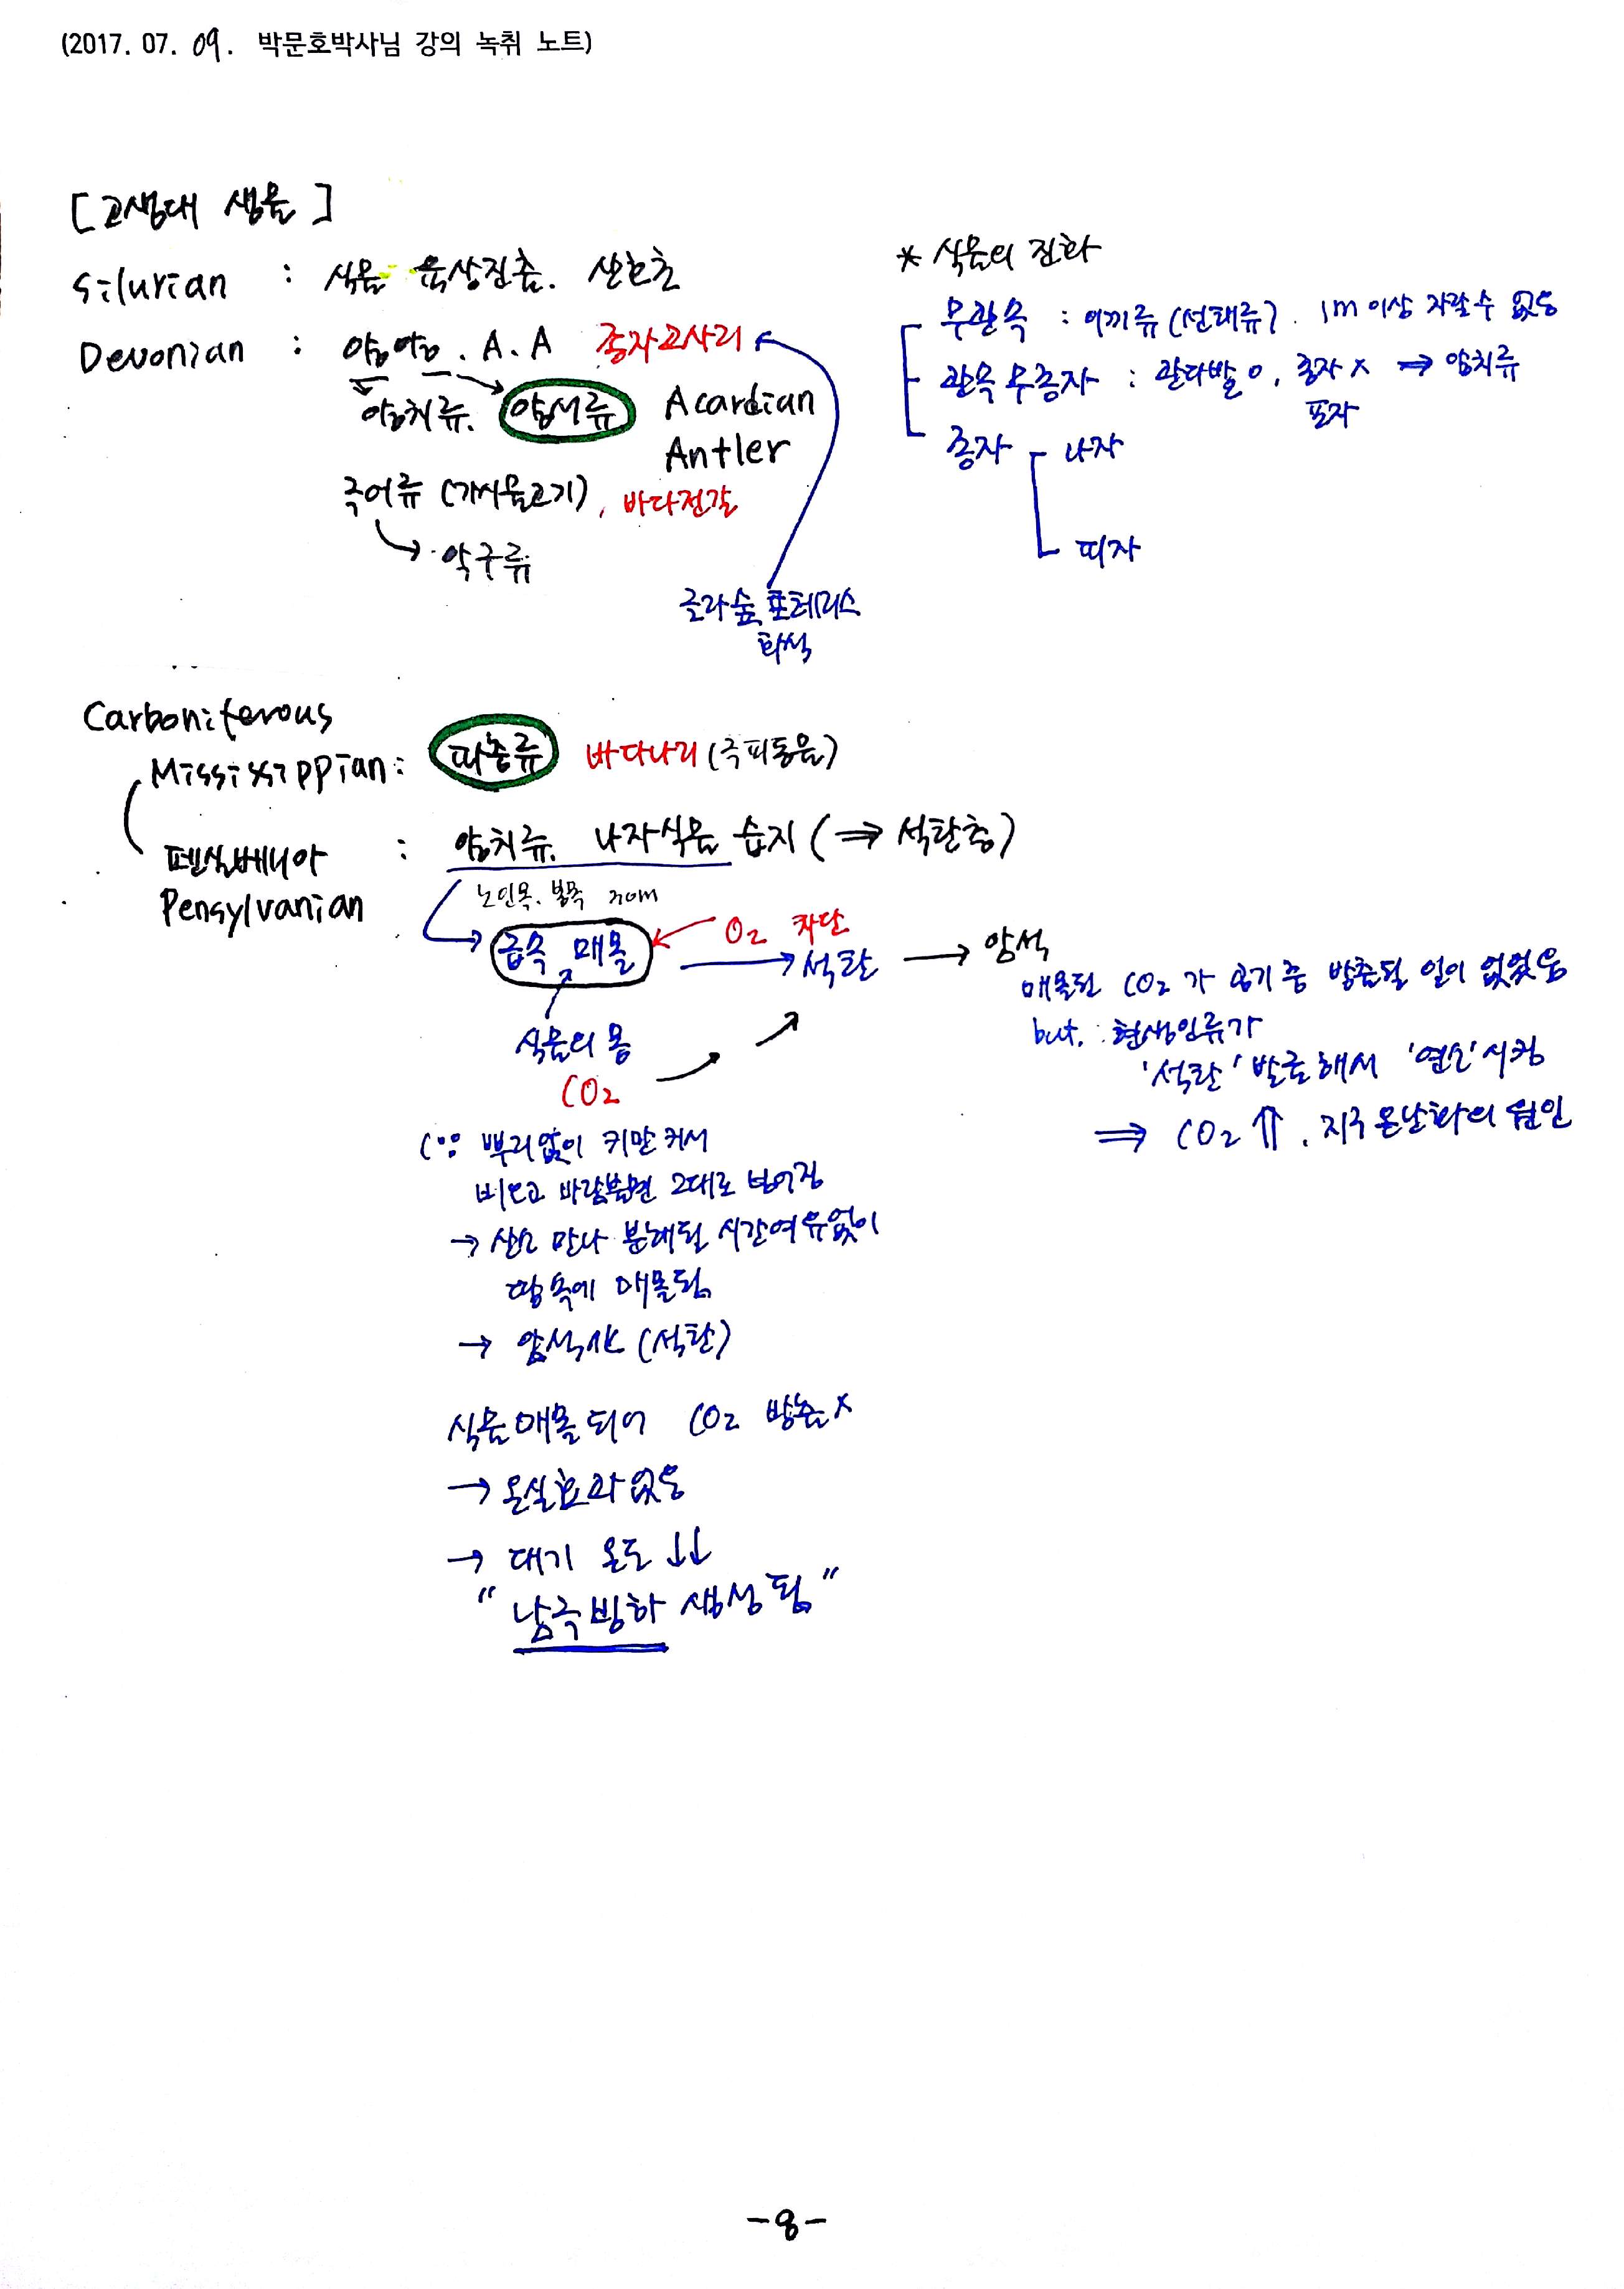 (2017. 07. 09. 박문호박사님 강의 녹취 노트)
[고생대 생물]
Silurian : 식물 육상진출. 산호초
Devonian : 양양. A. A 종자고사리
양치류. 양서류 Acardian
Antler
극어류 (가시물고기), 바다전갈
→ 악구류
글라숲포테리스
화석
* 식물의 진화
무관속 : 이끼류 (선태류). 1m 이상 자랄 수 없음
관속 무종자 : 관다발 O, 종자 X ⇒ 양치류
포자
종자 나자
피자
Carboniferous
Mississippian : 파충류 바다나리 (극피동물)
펜실베니아 : 양치류. 나자식물 습지 (⇒ 석탄층)
Pensylvanian
노인목. 봉목 20m
급속 매몰 O2 차단
→ 석탄 → 암석
식물의 몸
CO2
매몰된 CO2가 공기 중 방출될 일이 없었음
but. 현생인류가
'석탄' 발굴해서 '연소'시킴
⇒ CO2 ⇑. 지구온난화의 원인
(∵ 뿌리없이 키만 커서
비오고 바람불면 그대로 넘어짐
→ 산소 만나 분해될 시간여유없이
땅 속에 매몰됨
→ 암석化 (석탄)
식물매몰되어 CO2 방출 X
→ 온실효과 없음
→ 대기 온도 ↓↓
"남극빙하 생성됨"
-8-